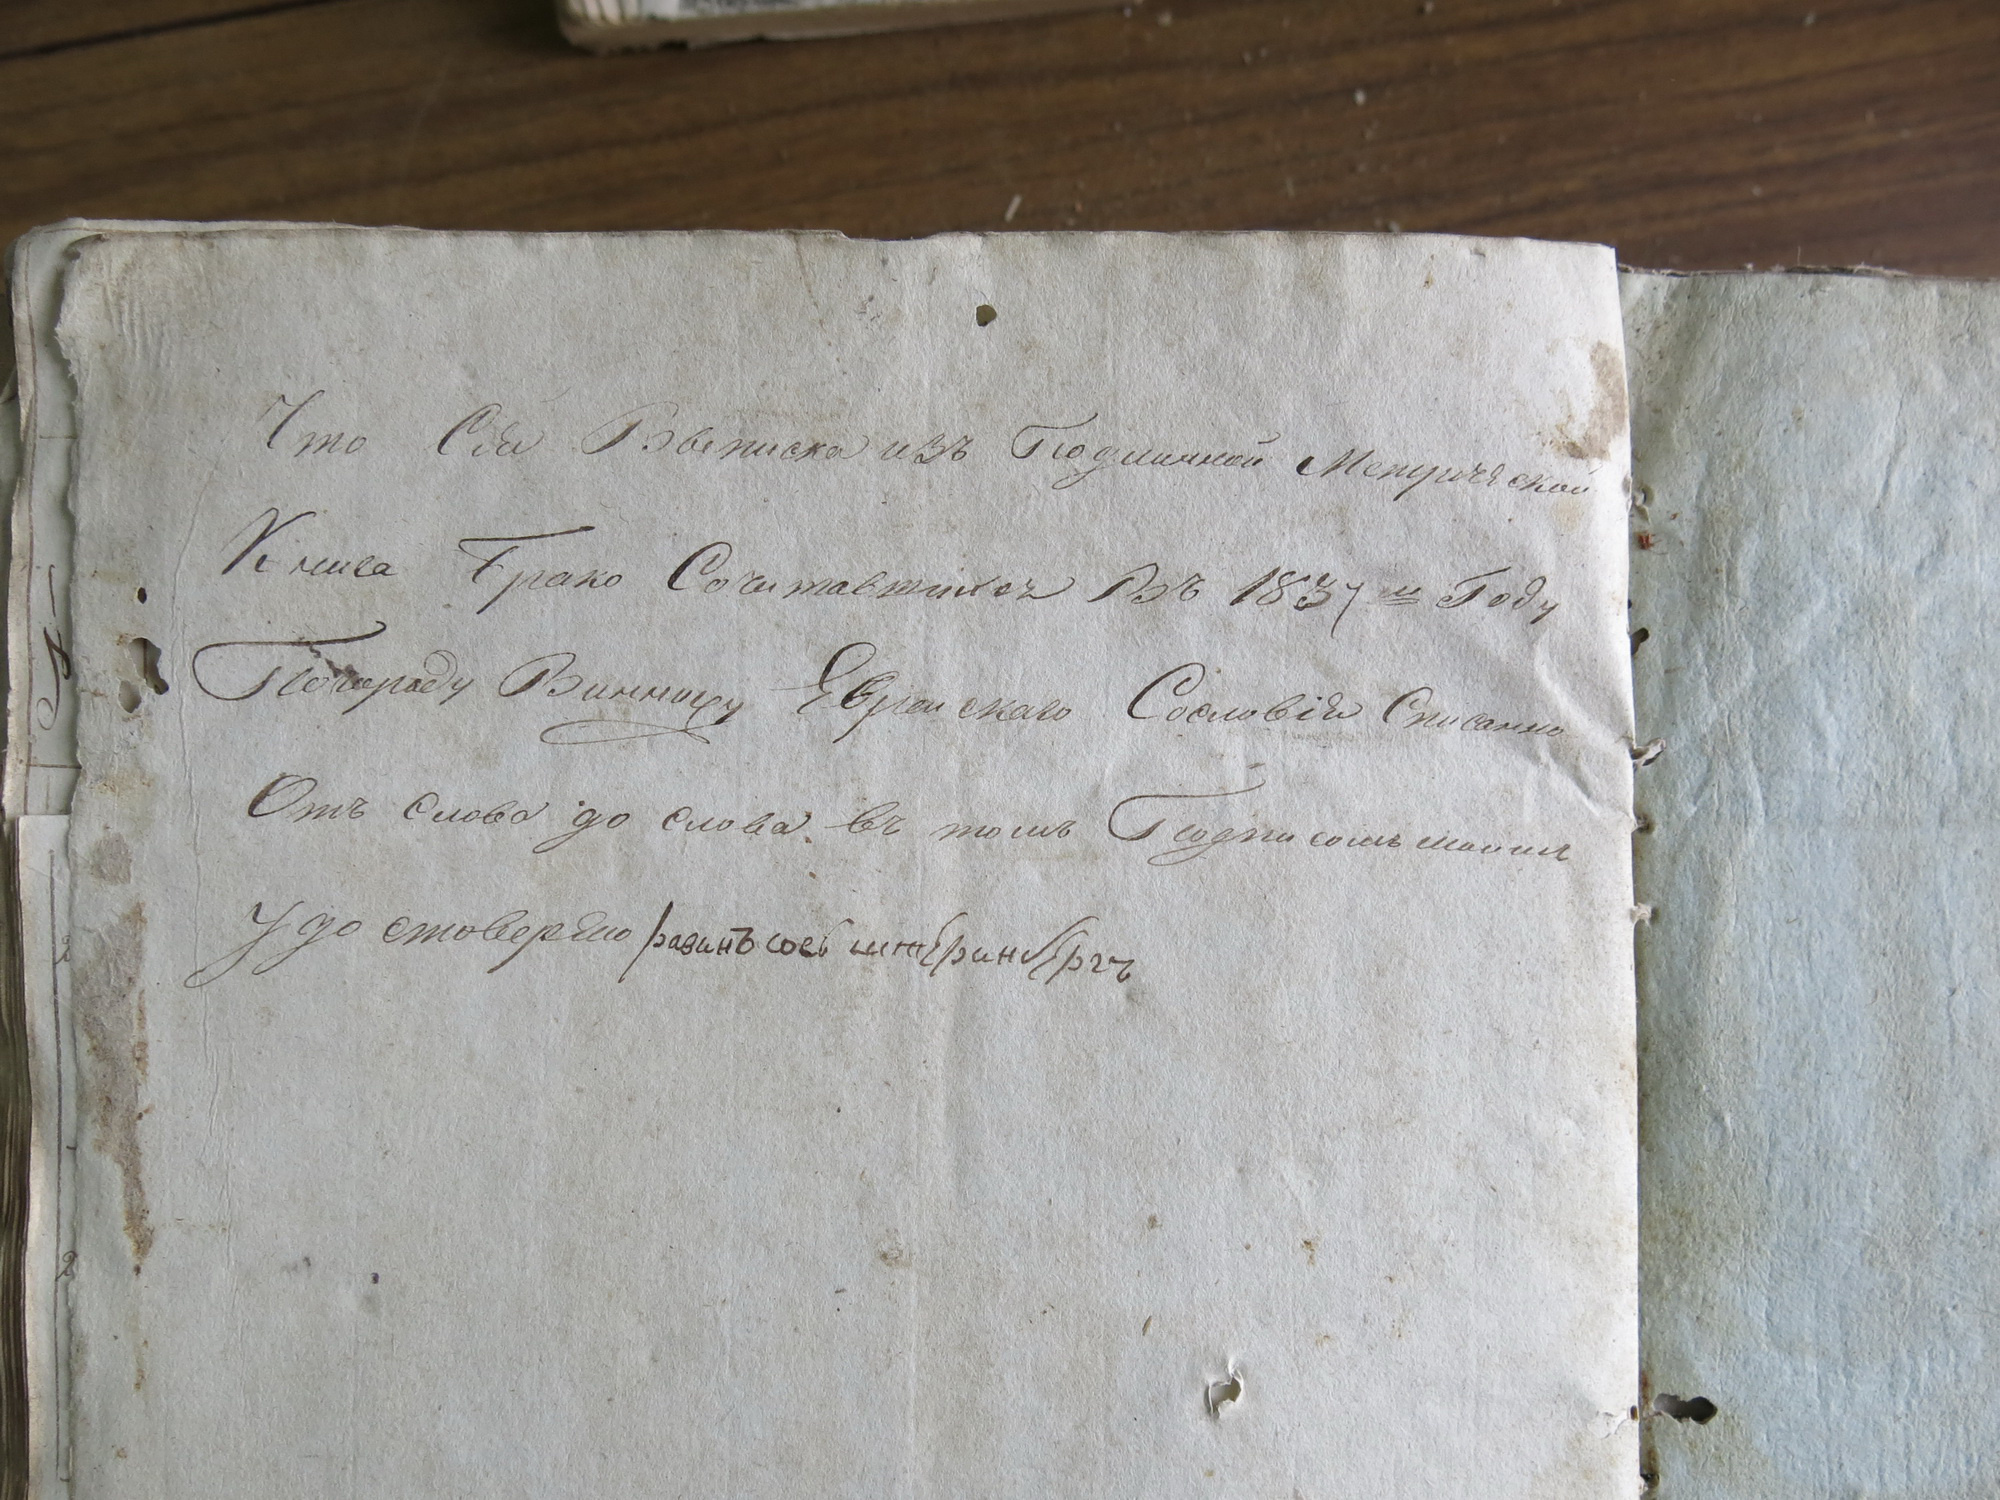 Что Сія Выписка изъ Подлинной Метрической
Книга Брако Сочитавшихся Въ 1837м Году
Погороду Винницу Евреискаго Сословія Списанно
Отъ слова до слова въ томъ Подписомъ моимъ
Удостоверяю равинъ иось штеринбергъ